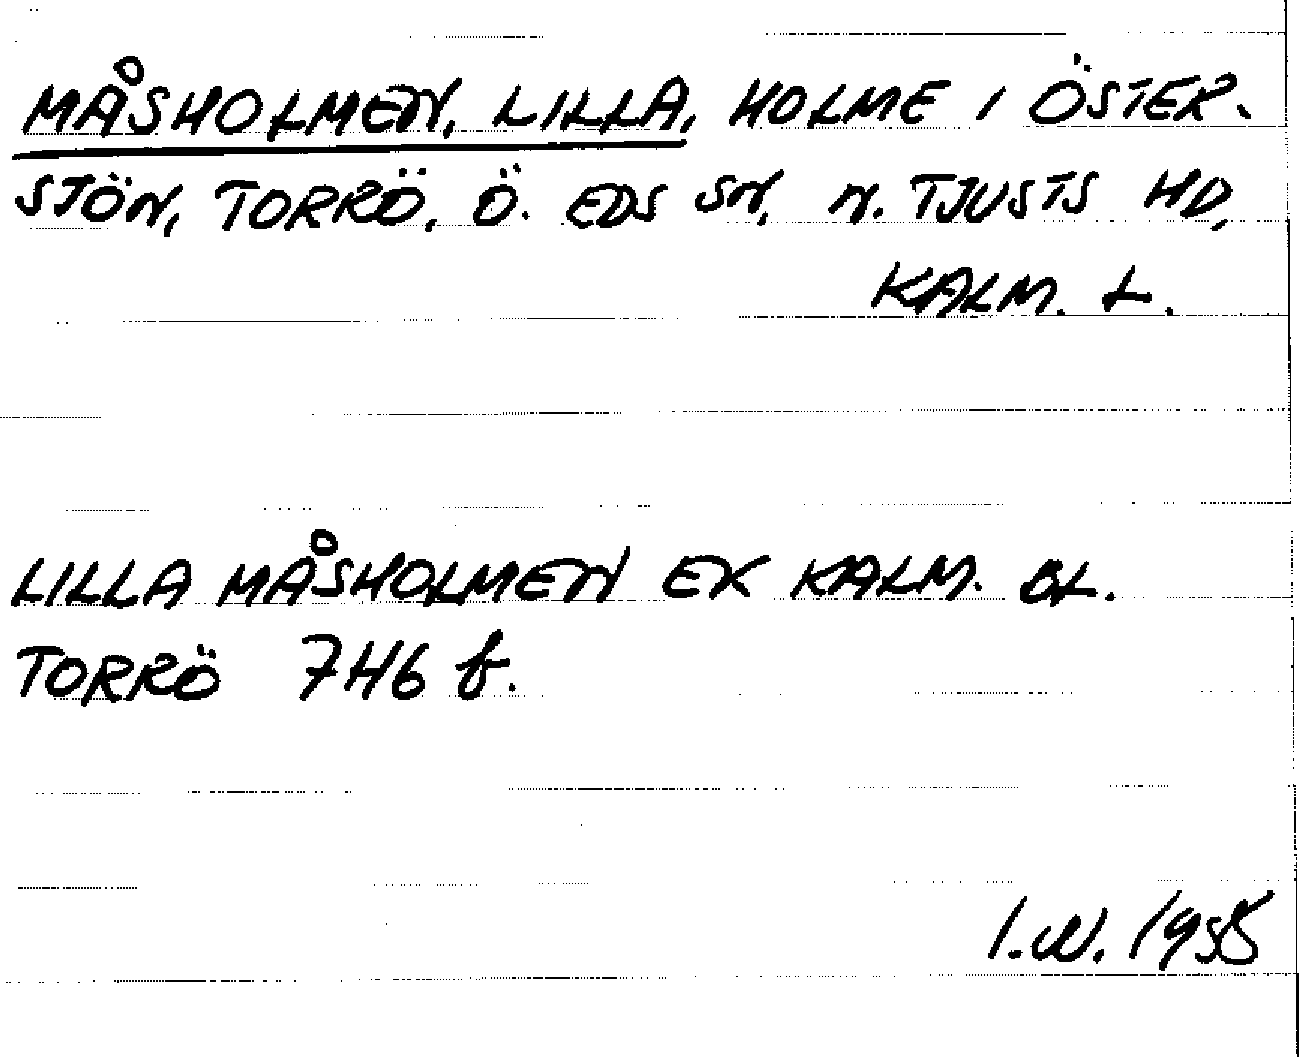 MÅSHOLMEN, LILLA, HOLME I ÖSTER-
SJÖN, TORRÖ, Ö. EDS SN, N. TJUSTS HD,
KALM. L.
LILLA MÅSHOLMEN EK KALM. BL.
TORRÖ 7H6 f.
I.W. 1958